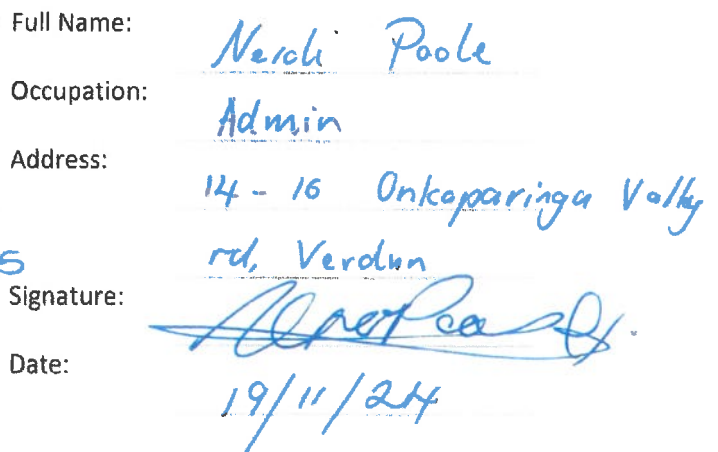 Full Name:
Poole
Occupation:
Admin
Address:
14 - 16 Onkaparinga Valley
rd, Verdun
5
Signature:
Date:
19/11/24